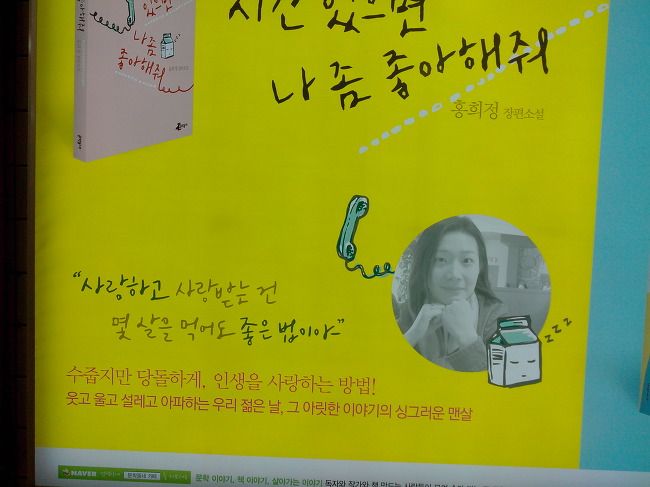 있으면
나 좀
좋아해줘
시간 있으면
나 좀 좋아해줘
홍희정 장편소설
“사랑하고 사랑받는 건
몇 살을 먹어도 좋은 법이야”
zzz
수줍지만 당돌하게, 인생을 사랑하는 방법!
웃고 울고 설레고 아파하는 우리 젊은 날, 그 아릿한 이야기의 싱그러운 맨살
NAVER 문학동네 카페
문학 이야기, 책 이야기, 살아가는 이야기 독자와 작가와 책 만드는 사람들의